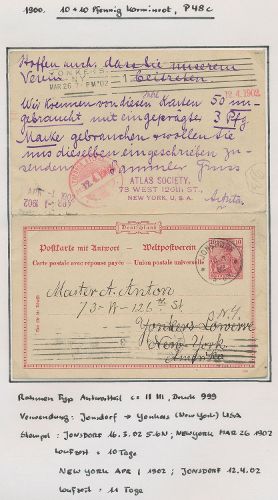 1900. 10 + 10 Pfennig Karminrot, P48c
Hoffen auch, dass Sie unserem
Verein
beitreten
YONKERS
MAR 26 7 PM '02
12.4.1902.
Wir können von diesen Karten 50 un-
gebraucht mit eingeprägter 3 Pfg
Marke gebrauchen & wollen Sie
uns dieselben eingeschrieben zu-
senden
Sammler Gruss
12.4.02
ATLAS SOCIETY,
73 WEST 126th ST.,
NEW YORK, U. S. A.
APR 1
1902
Deutschland
Postkarte mit Antwort — Weltpostverein
Carte postale avec réponse payée — Union postale universelle
10
10
JONSDORF
Master A. Anton
73-W-126th St
Yonkers Lowerre N.Y.
New York
Amerika
Rahmen Typ Antwortteil c: II III, Druck 999
Verwendung: Jonsdorf → Yonkers (New York) USA
Stempel: JONSDORF 16.3.02 5-6N; NEWYORK MAR 26 1902
Laufzeit = 10 Tage
NEW YORK APR 1 1902; JONSDORF 12.4.02
Laufzeit: 11 Tage